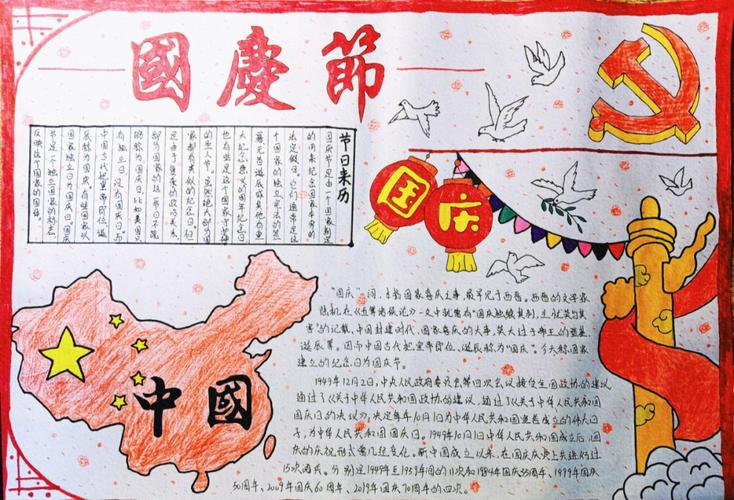 國慶節
节日来历
国庆节是由一个国家制定
的用来纪念国家本身的
法定假日。它们通常是这
个国家的独立、宪法的签
署、元首诞辰或其他有重
大纪念意义的周年纪念日
也有些是这个国家守护神
的圣人节。虽然绝大部分国
家都有类似的纪念日，但
是由于复杂的政治关系，
部分国家的这一节日不能
够称为国庆日，比如美国只
有独立日，没有国庆日，而
中国古代把皇帝即位、诞
辰称为国庆。有些国家以
国家独立日为国庆日。国庆
节是一个独立国家的标志
反映这个国家的国体。
国庆
中國
"国庆"一词，本指国家喜庆之事，最早见于西晋。西晋的文学家
陆机在《五等诸侯论》一文中就曾有"国庆独飨其利，主忧莫与其
害"的记载，中国封建时代、国家喜庆的大事，莫大过于帝王的登基、
诞辰等。因而中国古代把皇帝即位、诞辰称为"国庆"。今天称国家
建立的纪念日为国庆节。
1949年12月2日，中央人民政府委员会第四次会议接受全国政协的建议
通过了《关于中华人民共和国政协的建议，通过了《关于中华人民共和国
国庆日的决议》，决定每年10月1日为中华人民共和国宣告成立的伟大日
子，为中华人民共和国国庆日。1949年10月1日中华人民共和国成立后，国
庆的庆祝形式曾几经变化。新中国成立以来，在国庆庆典上共进行过
15次阅兵。分别是1949年至1959年间的11次和1984年国庆35周年、1999年国庆
50周年、2009年国庆60周年、2019年国庆70周年的四次。